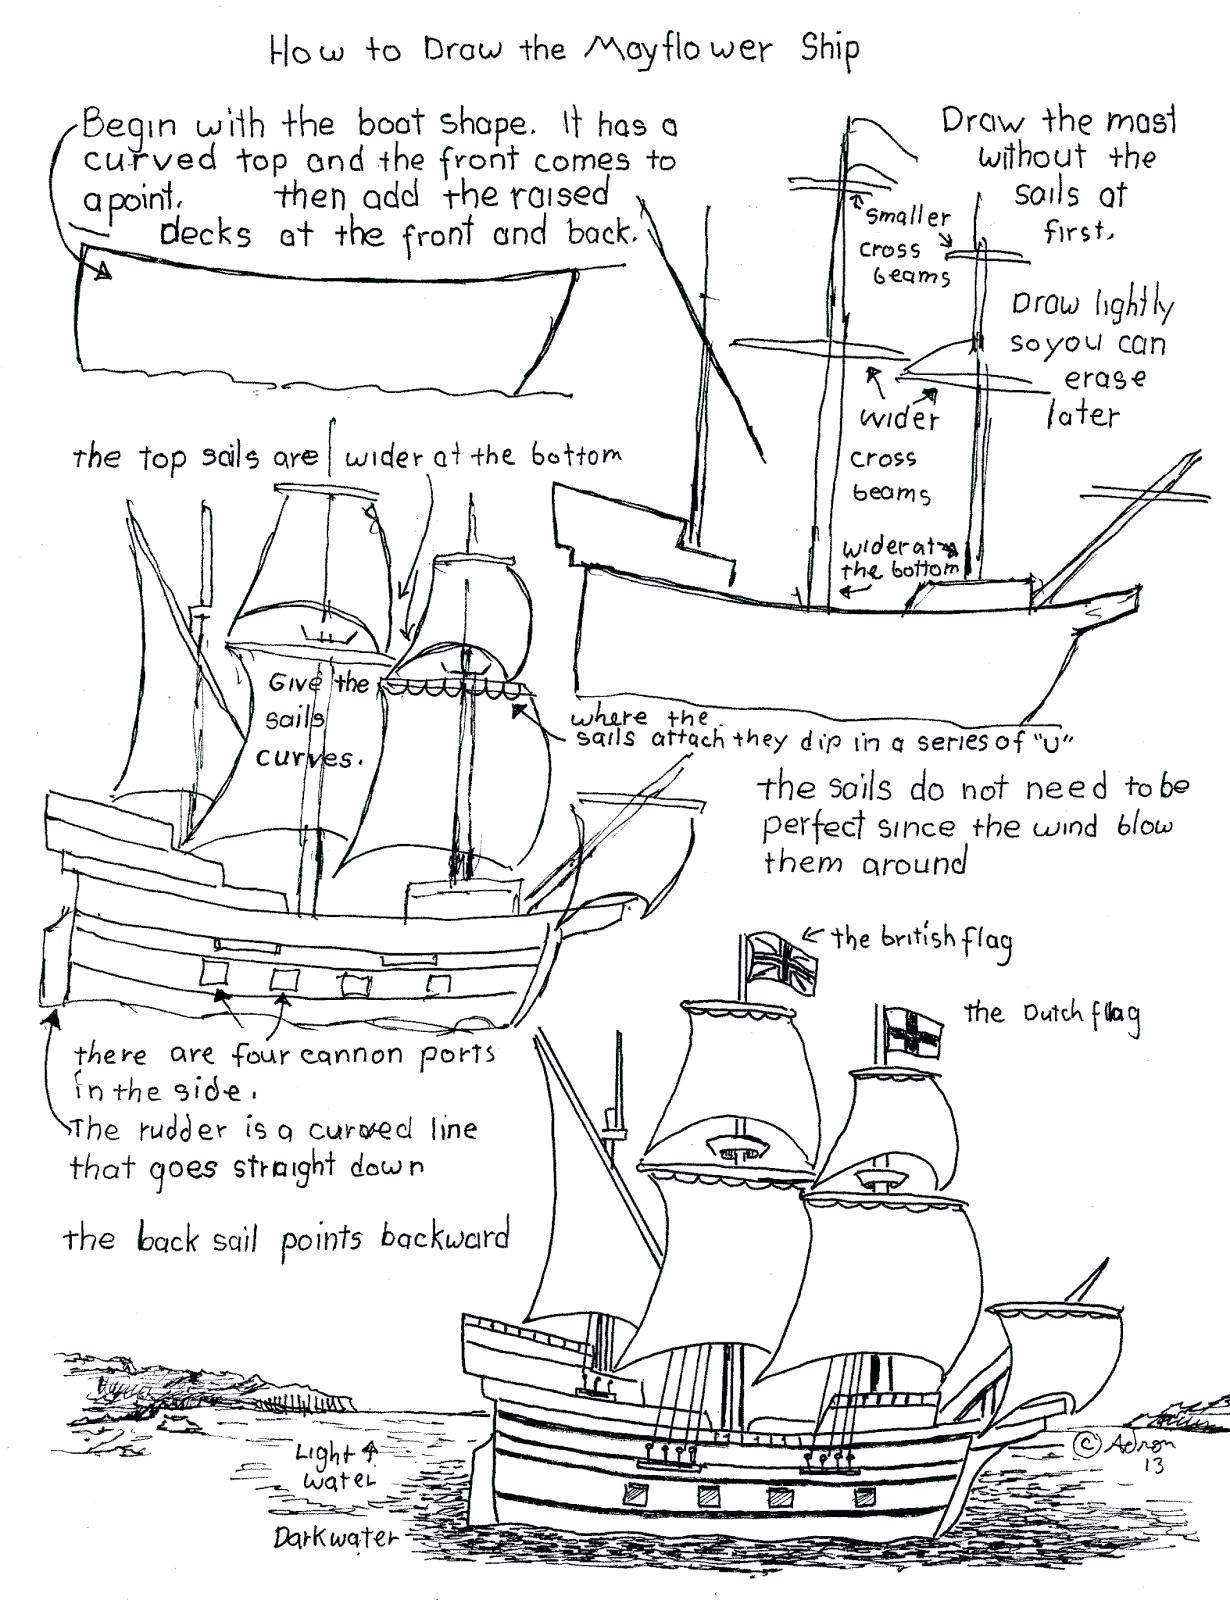 How to Draw the Mayflower Ship
Begin with the boat shape. It has a
curved top and the front comes to
a point. then add the raised
decks at the front and back.
Draw the mast
without the
sails at
first.
smaller
cross
beams
Draw lightly
so you can
erase
later
wider
cross
beams
wider at
the bottom
the top sails are wider at the bottom
Give the
sails
curves.
where the
sails attach they dip in a series of "U"
the sails do not need to be
perfect since the wind blow
them around
there are four cannon ports
in the side.
The rudder is a curved line
that goes straight down
the back sail points backward
the british flag
the Dutch flag
Light
water
Dark water
© Adron
13